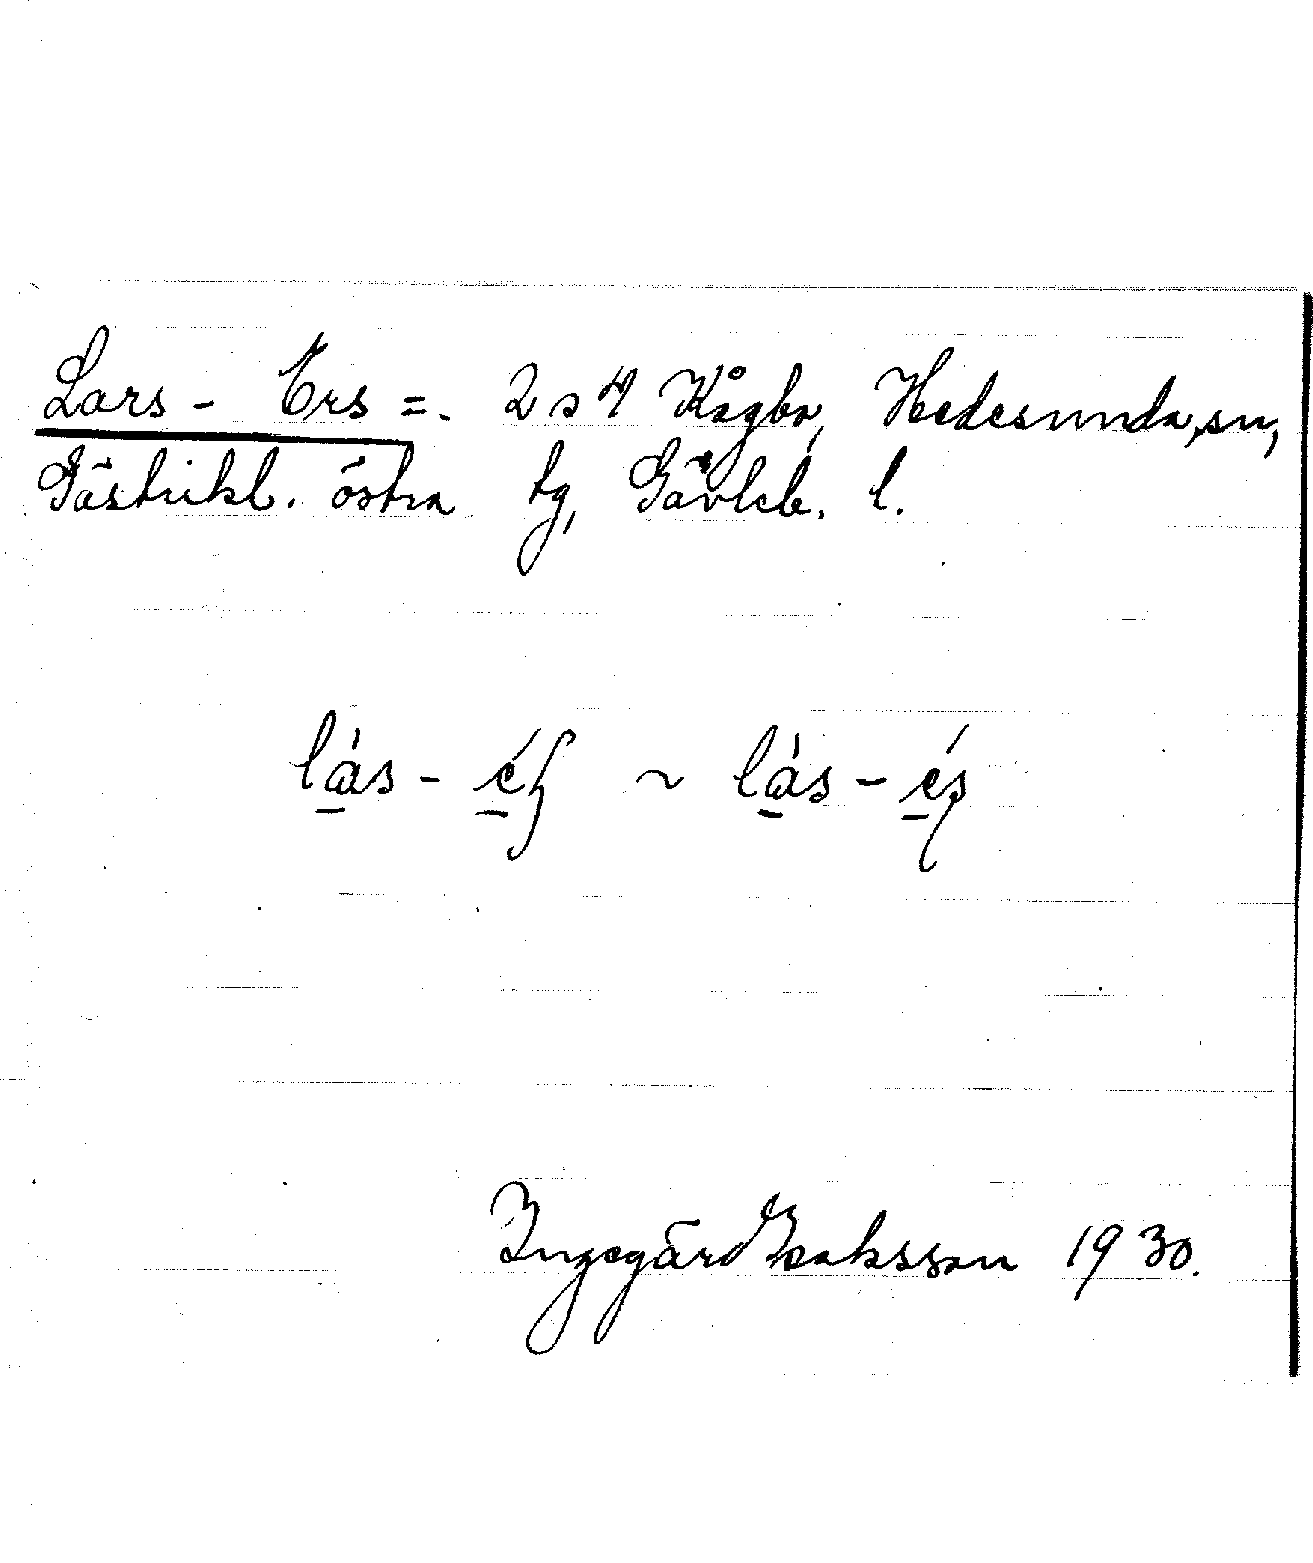 Lars - Ers =. 2 s 4 Kågbo, Hedesunda, sn,
Gästrikl. östra tg, Gävleb. l.
lás - é ~ lás - és
Ingegärd Isaksson 1930.